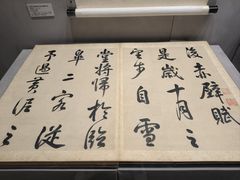 後赤壁賦
是歲十月之
望步自雪
堂將歸於臨
皋二客從
予過黃泥之